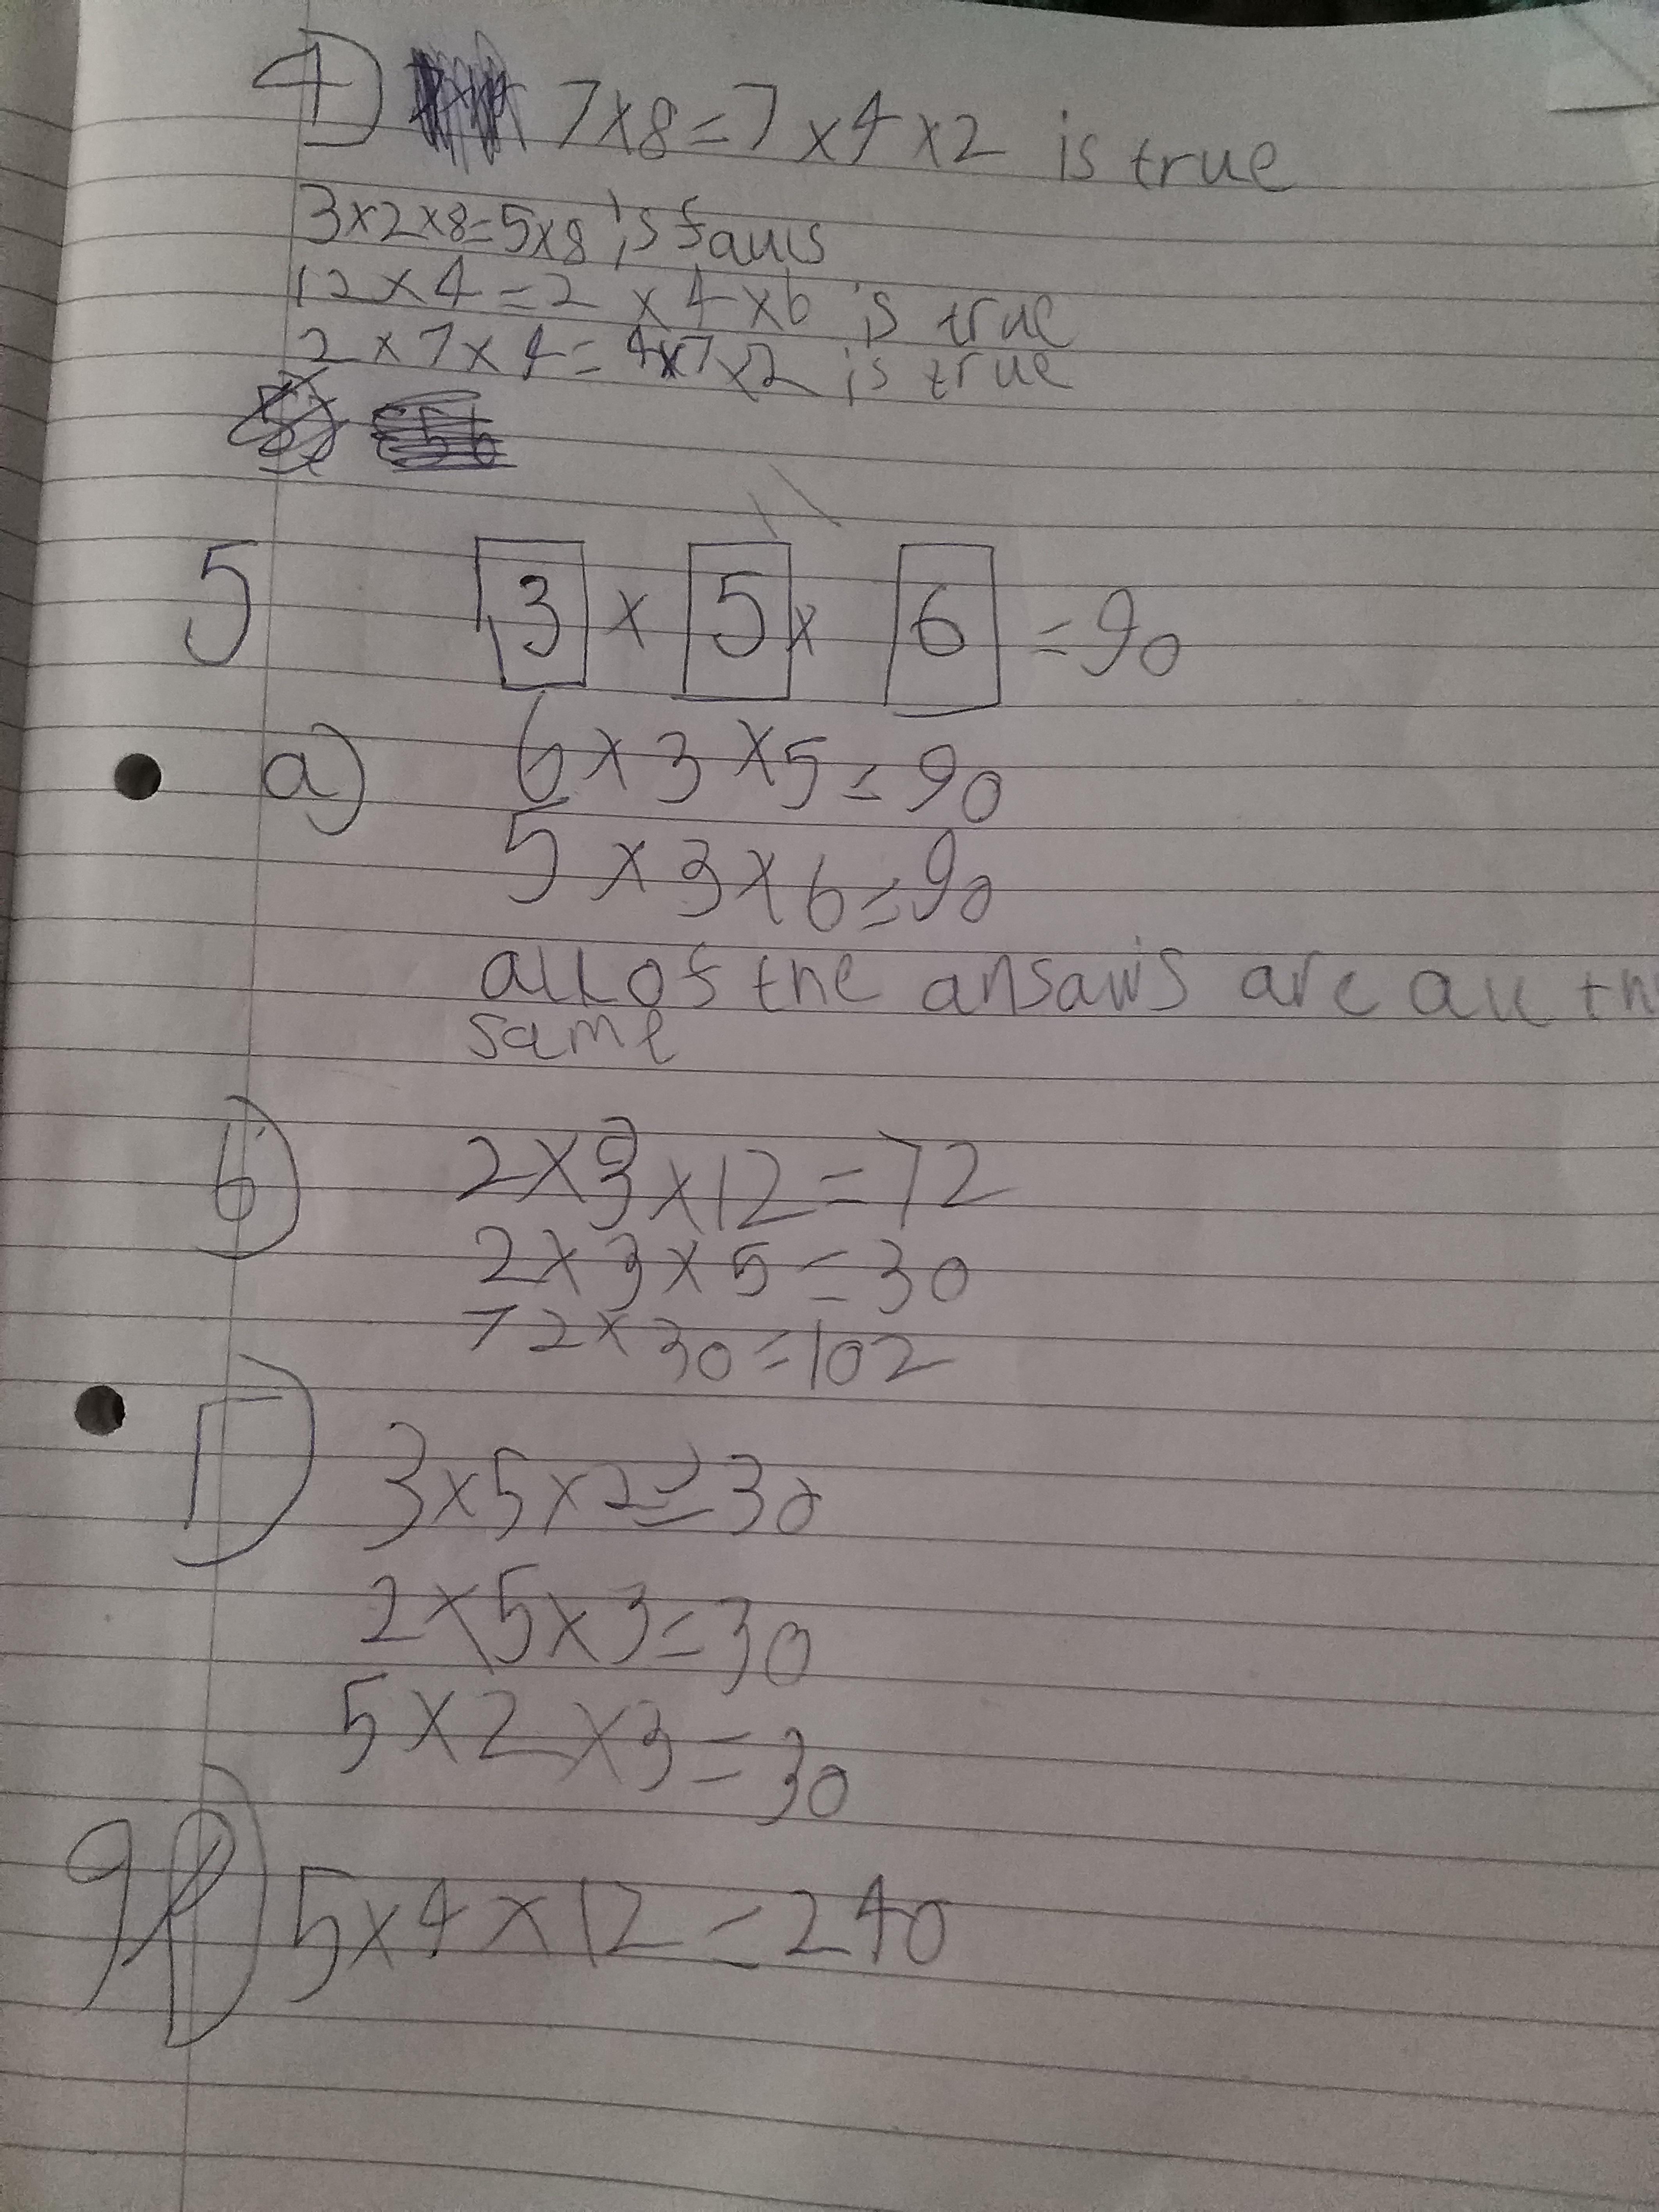 4) 7×8=7×4×2 is true
3×2×8=5×8 is fauls
12×4=2×4×6 is true
2×7×4=4×7×2 is true
5 3 × 5 × 6 =90
a) 6×3×5=90
5×3×6=90
all of the ansawis are all th
same
6) 2×3×12=72
2×3×5=30
72×30=102
1) 3×5×2=30
2×5×3=30
5×2×3=30
5×4×12=240